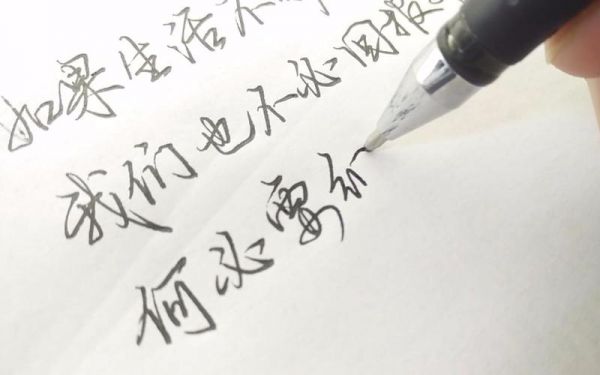 如果生活不
我们也不必回报
何必要